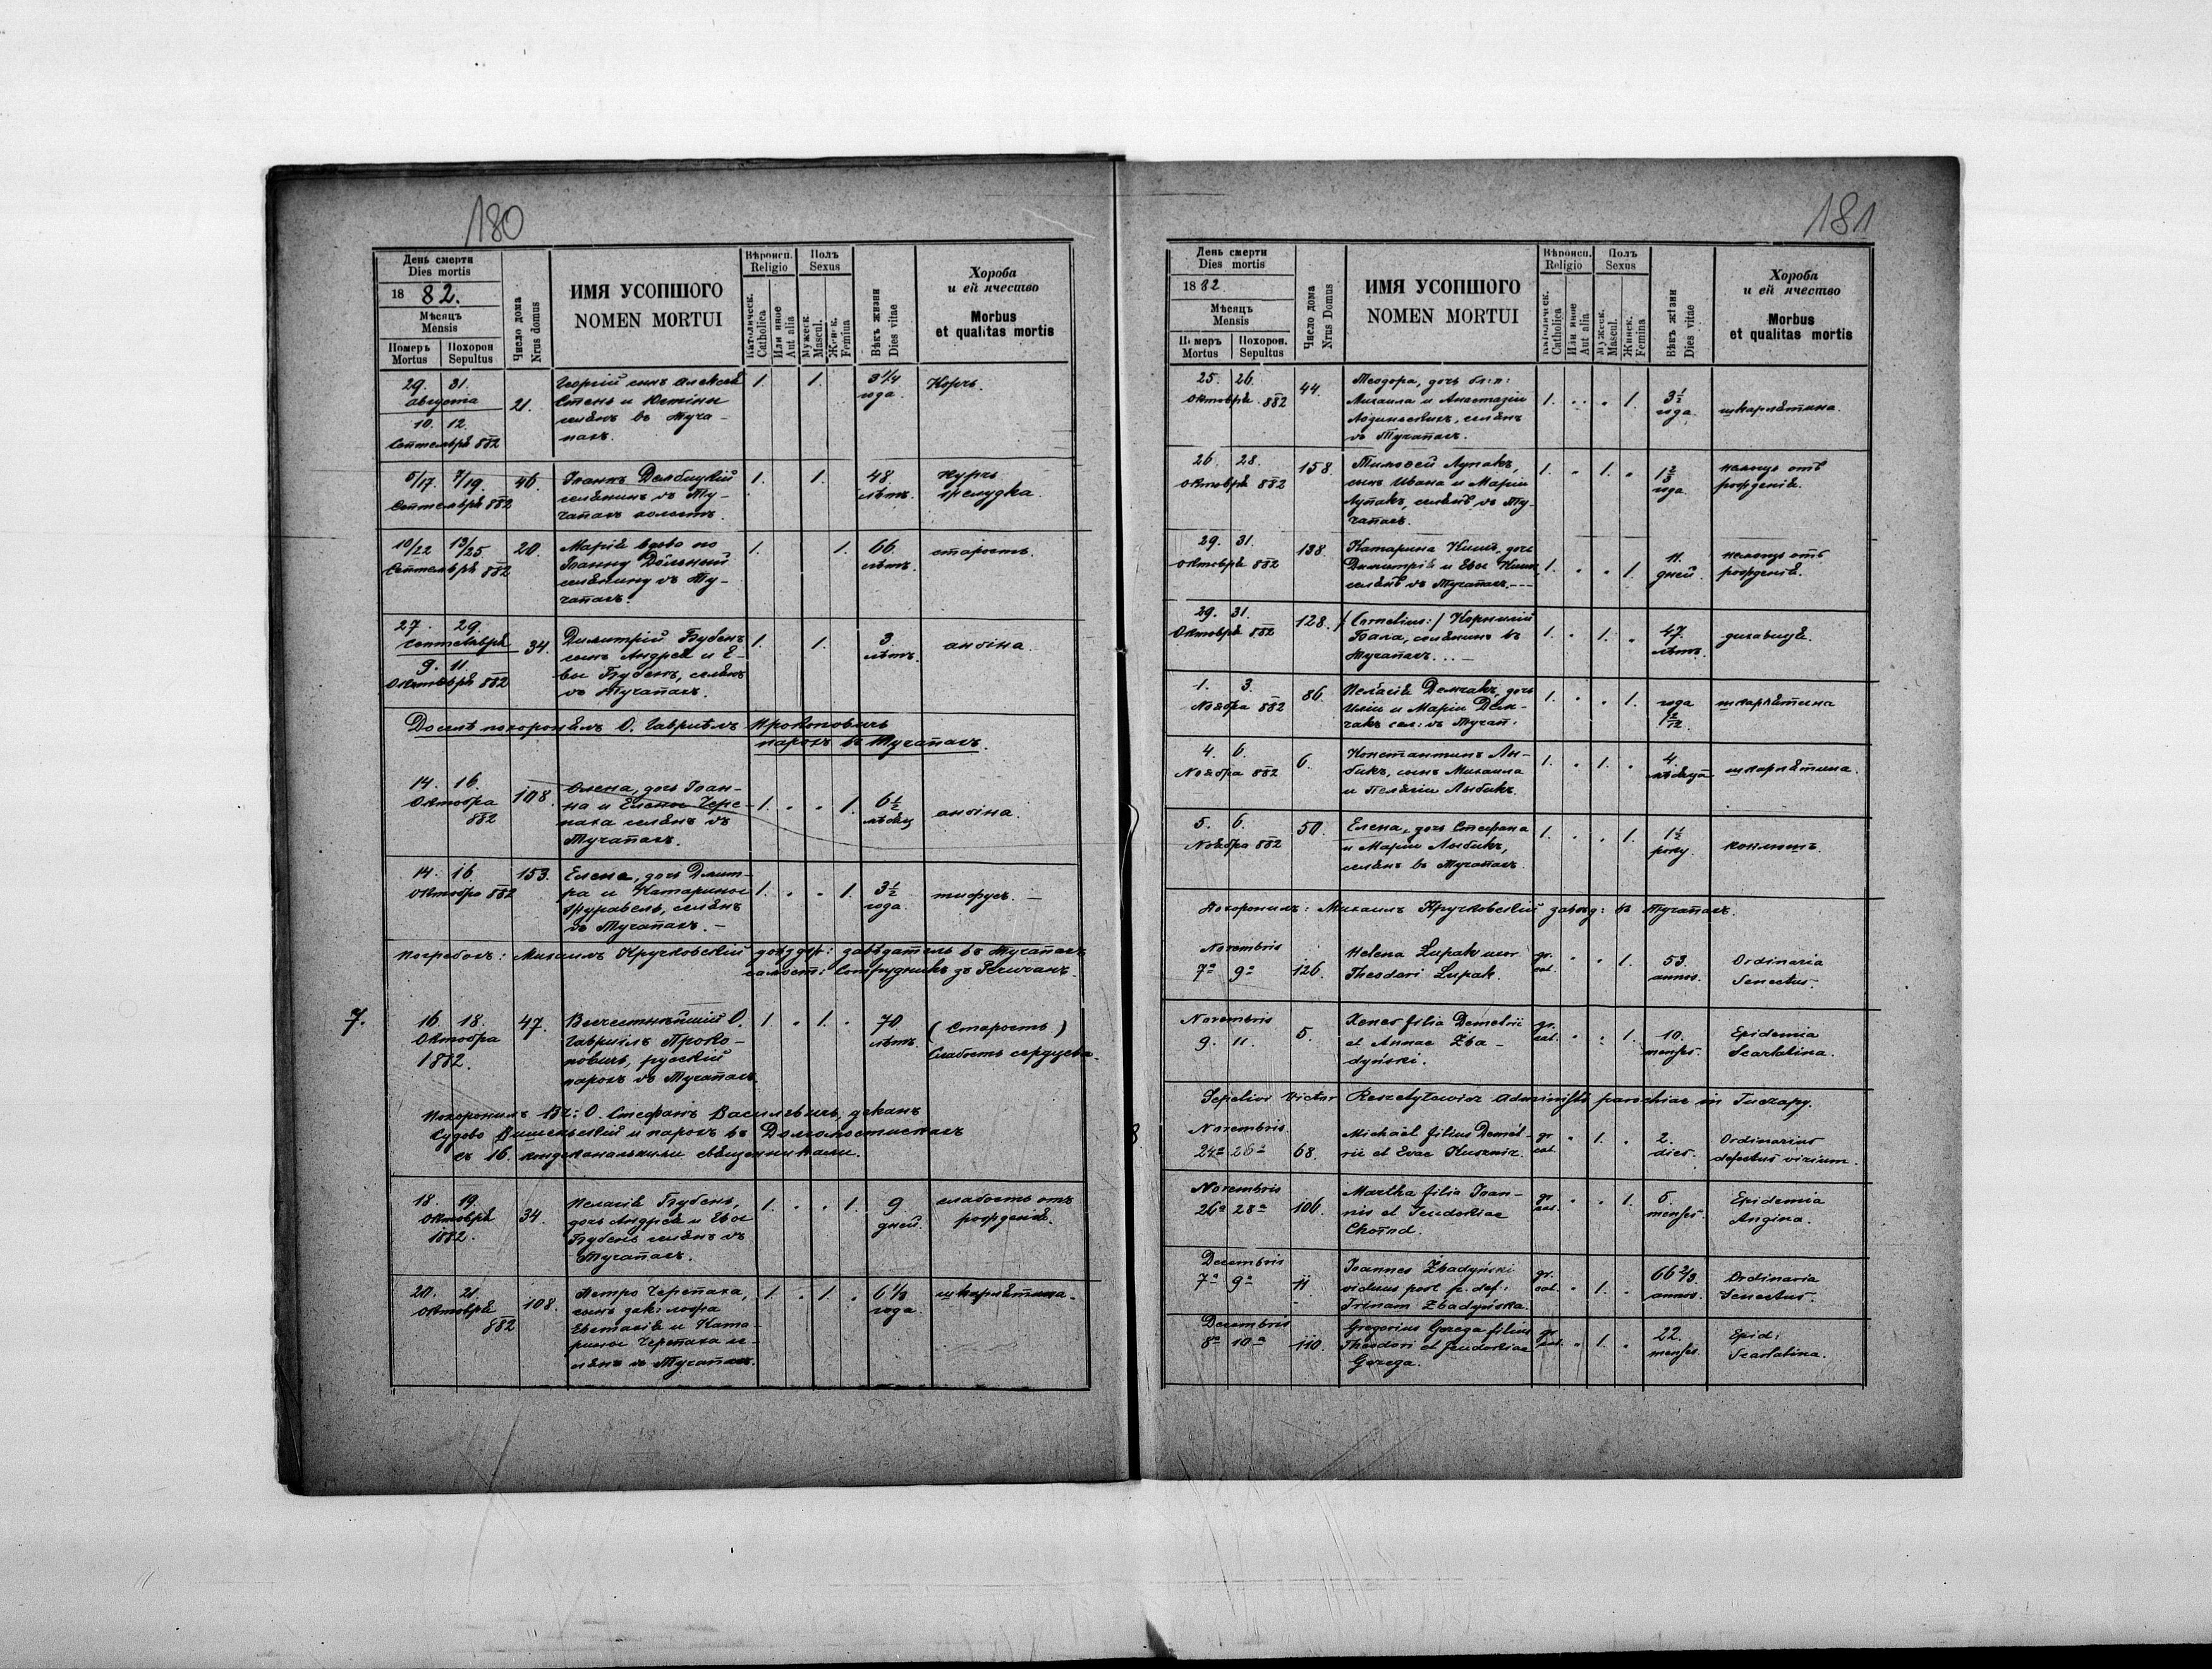 180
День смерти
Dies mortis
1882.
Мѣсяцъ
Mensis
Померъ Похорон
Mortus Sepultus
Число дома
Nrus domus
ИМЯ УСОПШОГО
NOMEN MORTUI
Вѣроисп.
Religio
Католическ.
Catholica
Или иное
Aut alia
Полъ
Sexus
Мужеск.
Mascul.
Женск.
Femina
Вѣкъ жизни
Dies vitae
Хороба
и ей ячество
Morbus
et qualitas mortis
29. 31.
Августа
10. 12.
Септемврія 882
21.
Георгій сынъ Алексѣя
Стень и Юстины
селянъ въ Туча-
пахъ.
1. 1.
3 1/4
года.
Корчь.
5/17. 7/19.
Септемврія 882
46.
Іоаннъ Дембицкій
селянинъ въ Ту-
чапахъ
1. 1.
48.
лѣтъ.
Курчь
желудка.
10/22 13/25
Септемврія 882
20.
Марія вдова по
Іоанну
селянину въ Ту-
чапахъ.
1. 1.
66.
лѣтъ.
старость.
27. 29.
Септемврія
9. 11.
Октоврія 882
34.
Димитрій Бубенъ
сынъ Андрея и Е-
вы Бубенъ, селянъ
въ Тучапахъ.
1. 1.
3.
лѣтъ.
ангіна.
Доселѣ похоронялъ О. Гавріилъ Прокоповичь
парохъ въ Тучапахъ.
14. 16.
Октовра
882
108.
Олена, дочь Іоан-
на и Елены Чере-
паха селянъ въ
Тучапахъ.
1. 1.
6 1/2
мѣсяц
ангіна.
14. 16.
Октовра 882
153.
Елена, дочь Дмит-
ра и Катарины
Журавель, селянъ
въ Тучапахъ.
1. 1.
3 1/2
года.
тифусъ.
Погребалъ: Михаилъ Кручковскій завѣдатель въ Тучапахъ
сотрудникъ
7.
16. 18.
Октовра
1882.
47.
Всечестнѣйшій О.
Гавріилъ Проко-
повичь, русскій
парохъ въ Тучапахъ.
1. 1.
70
лѣтъ.
(Старость)
Слабость сердцева.
Похоронилъ Вч: О. Стефанъ Василевичь, деканъ
Судово Вишенскій и парохъ въ Долгомостискахъ
съ 16. кондеканальными священниками.
18. 19.
Октоврія
1882.
34.
Пелагія Бубенъ,
дочь Андрея и Евы
Бубенъ селянъ въ
Тучапахъ.
1. 1.
9
дней.
слабость отъ
рожденія.
20. 21.
Октоврія
882
108.
Петро Черепаха,
сынъ
Евстахія и Ката-
рины Черепаха се-
лянъ въ Тучапахъ.
1. 1.
6 1/3
года.
шкарлятина.
181
День смерти
Dies mortis
1882
Мѣсяцъ
Mensis
Померъ Похорон.
Mortus Sepultus
Число дома
Nrus Domus
ИМЯ УСОПШОГО
NOMEN MORTUI
Вѣроисп.
Religio
Католическ.
Catholica
Или иное
Aut alia
Полъ
Sexus
Мужеск.
Mascul.
Женск.
Femina
Вѣкъ жізни
Dies vitae
Хороба
и ей ячество
Morbus
et qualitas mortis
25. 26.
Октоврія 882
44.
Теодора, дочь бл: п:
Михаила и Анастазіи
селянъ
въ Тучапахъ.
1. 1.
3 1/2
года.
шкарлятина.
26. 28.
Октоврія 882
158.
Тимоѳей Лупакъ,
сынъ Ивана и Маріи
Лупакъ, селянъ въ Ту-
чапахъ.
1. 1.
1 2/3
года.
немощь отъ
рожденія.
29. 31.
Октоврія 882
138.
Катарина Кишъ, дочь
Димитрія и Евы Кишъ,
селянъ въ Тучапахъ.
1. 1.
11.
дней.
немощь отъ
рожденія.
29. 31.
Октоврія 882
128.
/Cornelius:/ Корнилій
Бала, селянинъ въ
Тучапахъ.
1. 1.
47.
лѣтъ.
дихавиця.
1. 3.
Ноября 882
86.
Пелагія Демчакъ, дочь
Иліи и Маріи Дем-
чакъ сел: въ Тучап:
1. 1.
года
шкарлятина
4. 6.
Ноября 882
6.
Константинъ Лы-
бикъ, сынъ Михаила
и Пелагіи Лыбикъ.
1. 1.
4.
мѣсяца
шкарлятина.
5. 6.
Ноября 882
50.
Елена, дочь Стефана
и Маріи Лыбикъ,
селянъ въ Тучапахъ.
1. 1.
1 1/2
року.
коклюшъ.
Похоронилъ: Михаилъ Кручковскій завѣд: въ Тучапахъ.
Novembris
7ª 9ª
126.
Helena Łupak uxor
Theodori Łupak.
gr.
cat.
1.
53.
annos.
Ordinaria
Senectus.
Novembris
9. 11.
5.
Xenes filia Demetrii
et Annae Zba-
dyński.
gr.
cat.
1.
10.
menses.
Epidemia
Scarlatina.
Sepelivi Victor Reszetyłowicz administ. parochiae in Tuczapy.
Novembris
24ª 26ª
68.
Michaël filius Demet-
rii et Evae Kusznir.
gr.
cat.
1.
2.
dies.
Ordinarius
defectus virium.
Novembris
26ª 28ª
106.
Martha filia Ioan-
nis et Teudokiae
Chomd.
gr.
cat.
1.
5.
menses.
Epidemia
Angina.
Decembris
7ª 9ª
11.
Ioannes Zbadyński
viduus post p. def:
Irinam Zbadyńska.
gr.
cat.
1.
66 2/3.
annos.
Ordinaria
Senectus.
Decembris
8ª 10ª
110.
Gregorius Gerega filius
Theodori et Teudokiae
Gerega.
gr.
cat.
1.
22.
menses.
Epid:
Scarlatina.